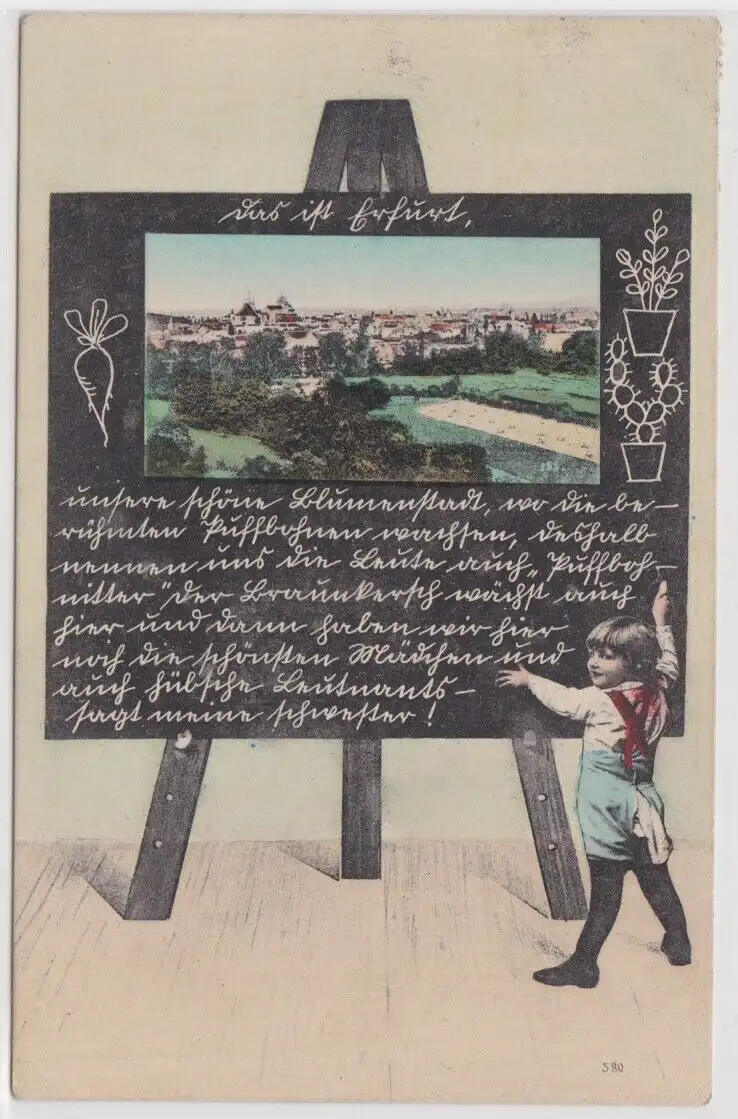 Das ist Erfurt,
unsere schöne Blumenstadt, wo die be-
rühmten Puffbohnen wachsen, deshalb
nennen uns die Leute auch „Puffboh-
nitter" Der Braunkersch wächst auch
hier und dann haben wir hier
noch die schönsten Mädchen und
auch hübsche Leutnants-
sagt meine Schwester!
580